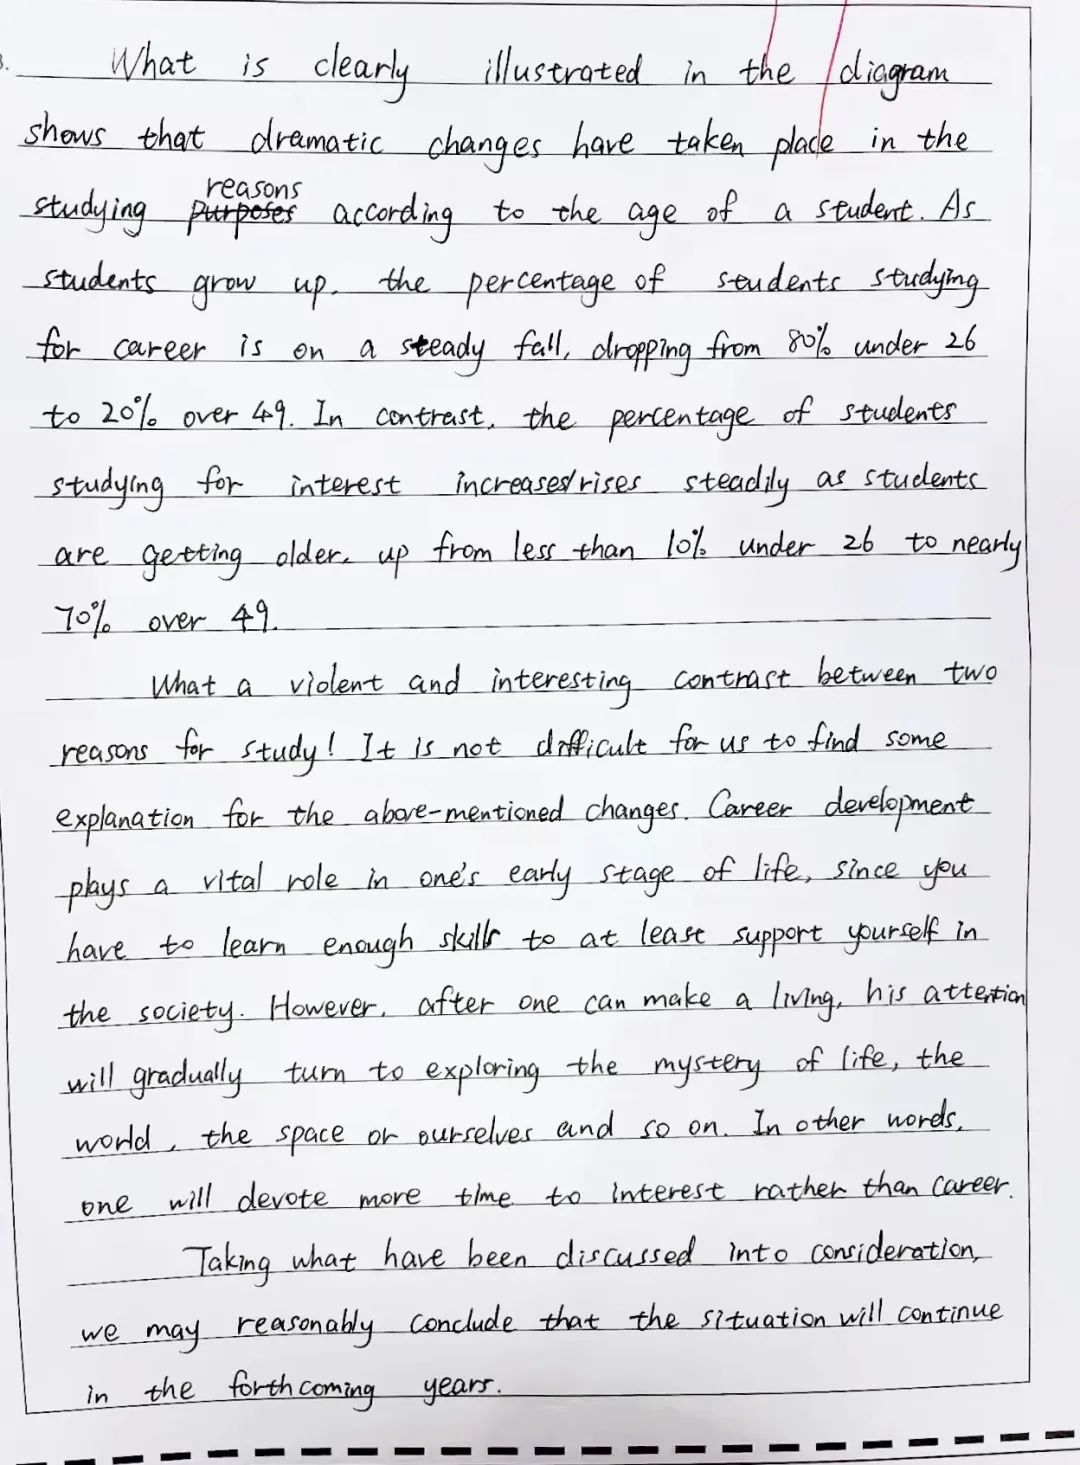 3. What is clearly illustrated in the diagram
shows that dramatic changes have taken place in the
reasons
studying purposes according to the age of a student. As
students grow up, the percentage of students studying
for career is on a steady fall, dropping from 80% under 26
to 20% over 49. In contrast, the percentage of students
studying for interest increases/rises steadily as students
are getting older, up from less than 10% under 26 to nearly
70% over 49.
What a violent and interesting contrast between two
reasons for study! It is not difficult for us to find some
explanation for the above-mentioned changes. Career development
plays a vital role in one's early stage of life, since you
have to learn enough skills to at least support yourself in
the society. However, after one can make a living, his attention
will gradually turn to exploring the mystery of life, the
world, the space or ourselves and so on. In other words,
one will devote more time to interest rather than career.
Taking what have been discussed into consideration,
we may reasonably conclude that the situation will continue
in the forthcoming years.